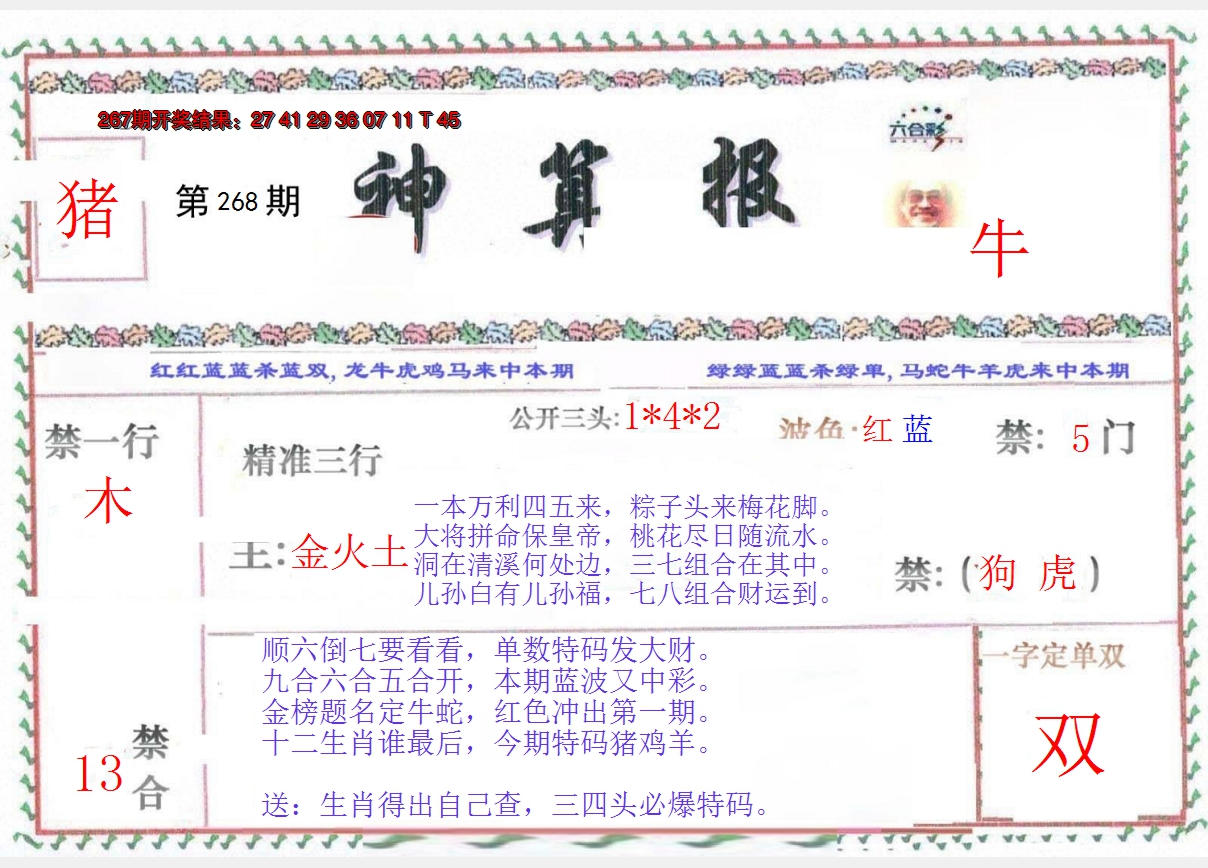 267期开奖结果：27 41 29 36 07 11 T 45
六合彩
猪
第 268 期
神算报
牛
红红蓝蓝杀蓝双, 龙牛虎鸡马来中本期
绿绿蓝蓝杀绿单, 马蛇牛羊虎来中本期
禁一行
木
精准三行
公开三头: 1*4*2
波色: 红 蓝
禁: 5 门
主: 金火土
一本万利四五来，粽子头来梅花脚。
大将拼命保皇帝，桃花尽日随流水。
洞在清溪何处边，三七组合在其中。
儿孙白有儿孙福，七八组合财运到。
禁: (狗 虎)
13 禁合
顺六倒七要看看，单数特码发大财。
九合六合五合开，本期蓝波又中彩。
金榜题名定牛蛇，红色冲出第一期。
十二生肖谁最后，今期特码猪鸡羊。
送：生肖得出自己查，三四头必爆特码。
一字定单双
双